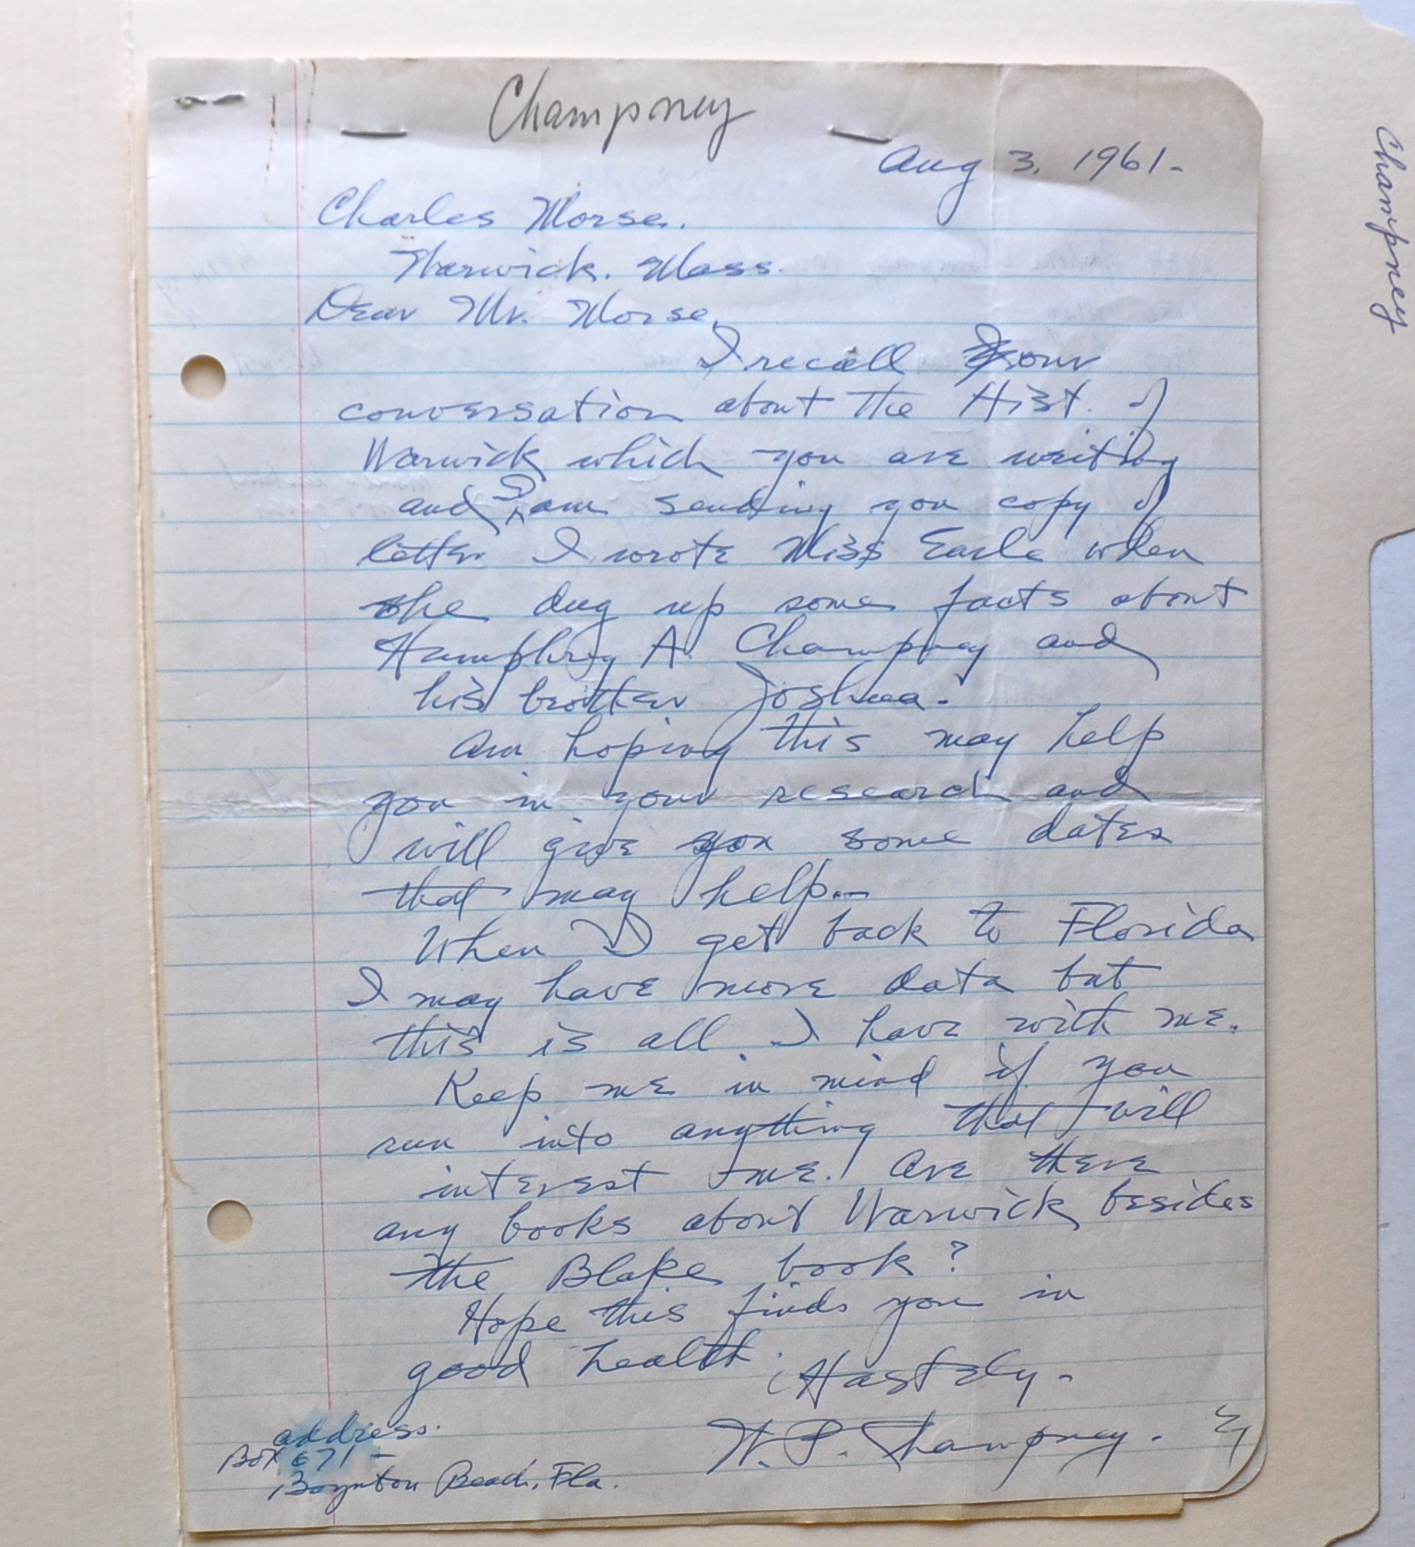 Champney
Aug 3, 1961-
Charles Morse.
Warwick. Mass.
Dear Mr. Morse,
I recall your
conversation about the Hist. of
Warwick which you are writing
and I am sending you copy of
letter I wrote Miss Earle when
she dug up some facts about
Humphrey A. Champney and
his brother Joshua.
Am hoping this may help
you in your research and
will give you some dates
that may help.-
When I get back to Florida
I may have more data but
this is all I have with me.
Keep me in mind if you
run into anything that will
interest me. Are there
any books about Warwick besides
the Blake book?
Hope this finds you in
good health.
Hastily-
W. P. Champney.
address.
Box 671-
Boynton Beach, Fla.
Champney